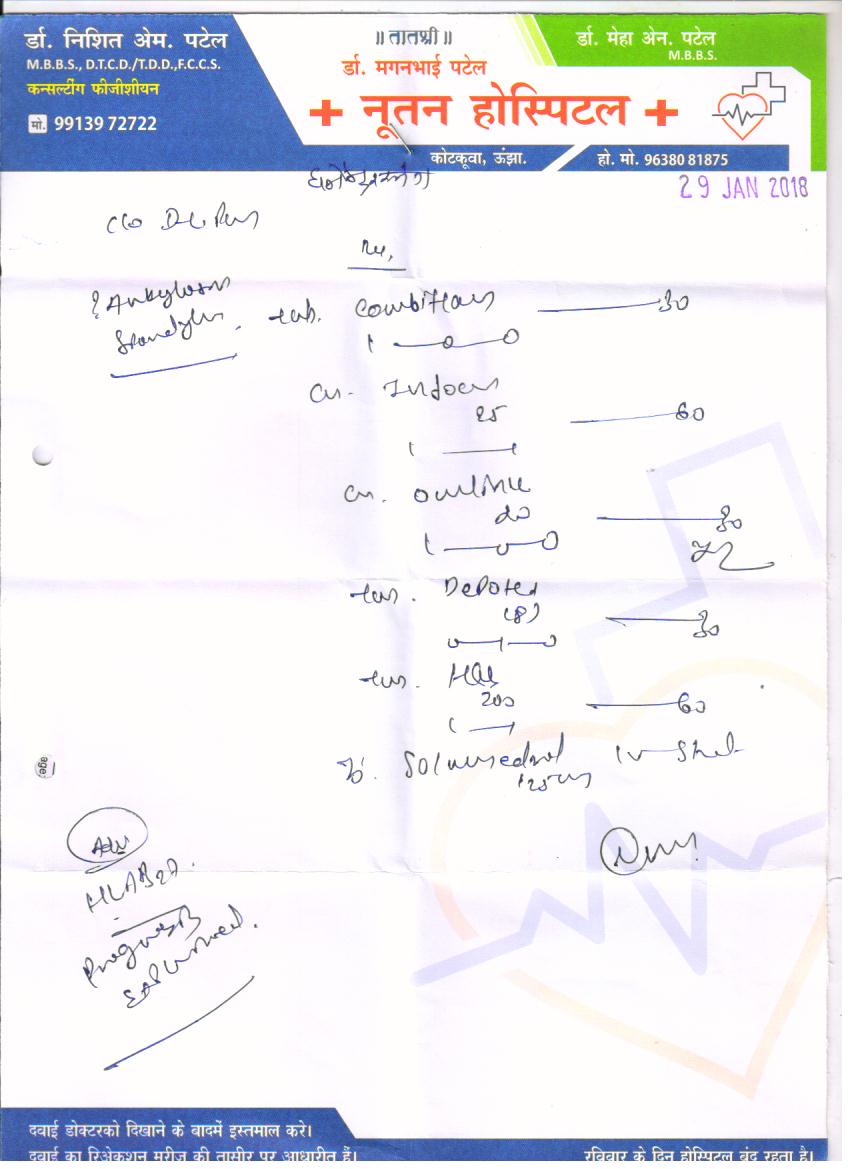 डॉ. निशित अेम. पटेल
M.B.B.S., D.T.C.D./T.D.D.,F.C.C.S.
कन्सल्टींग फीजीशीयन
मो. 99139 72722
॥ तातश्री ॥
डॉ. मगनभाई पटेल
+ नूतन होस्पिटल +
कोटकूवा, ऊंझा.
डॉ. मेहा अेन. पटेल
M.B.B.S.
हो. मो. 96380 81875
29 JAN 2018
c/o
Rx,
? Ankylosing
Spondylitis
tab. Combiflam 30
1 0 0
Cap. Indocap
25 60
1 1
Cap.
20 30
1 0 0
tab.
(8) 30
0 1 0
tab. HCQ
200 60
1 1
Solumedrol IV Stat
125
Adv
HLA B27.
Prognosis
Explained.
age
दवाई डोक्टरको दिखाने के बादमें इस्तमाल करे।
दवाई का रिअेकशन मरीज की तासीर पर आधारीत हैं।
रविवार के दिन होस्पिटल बंद रहता है।